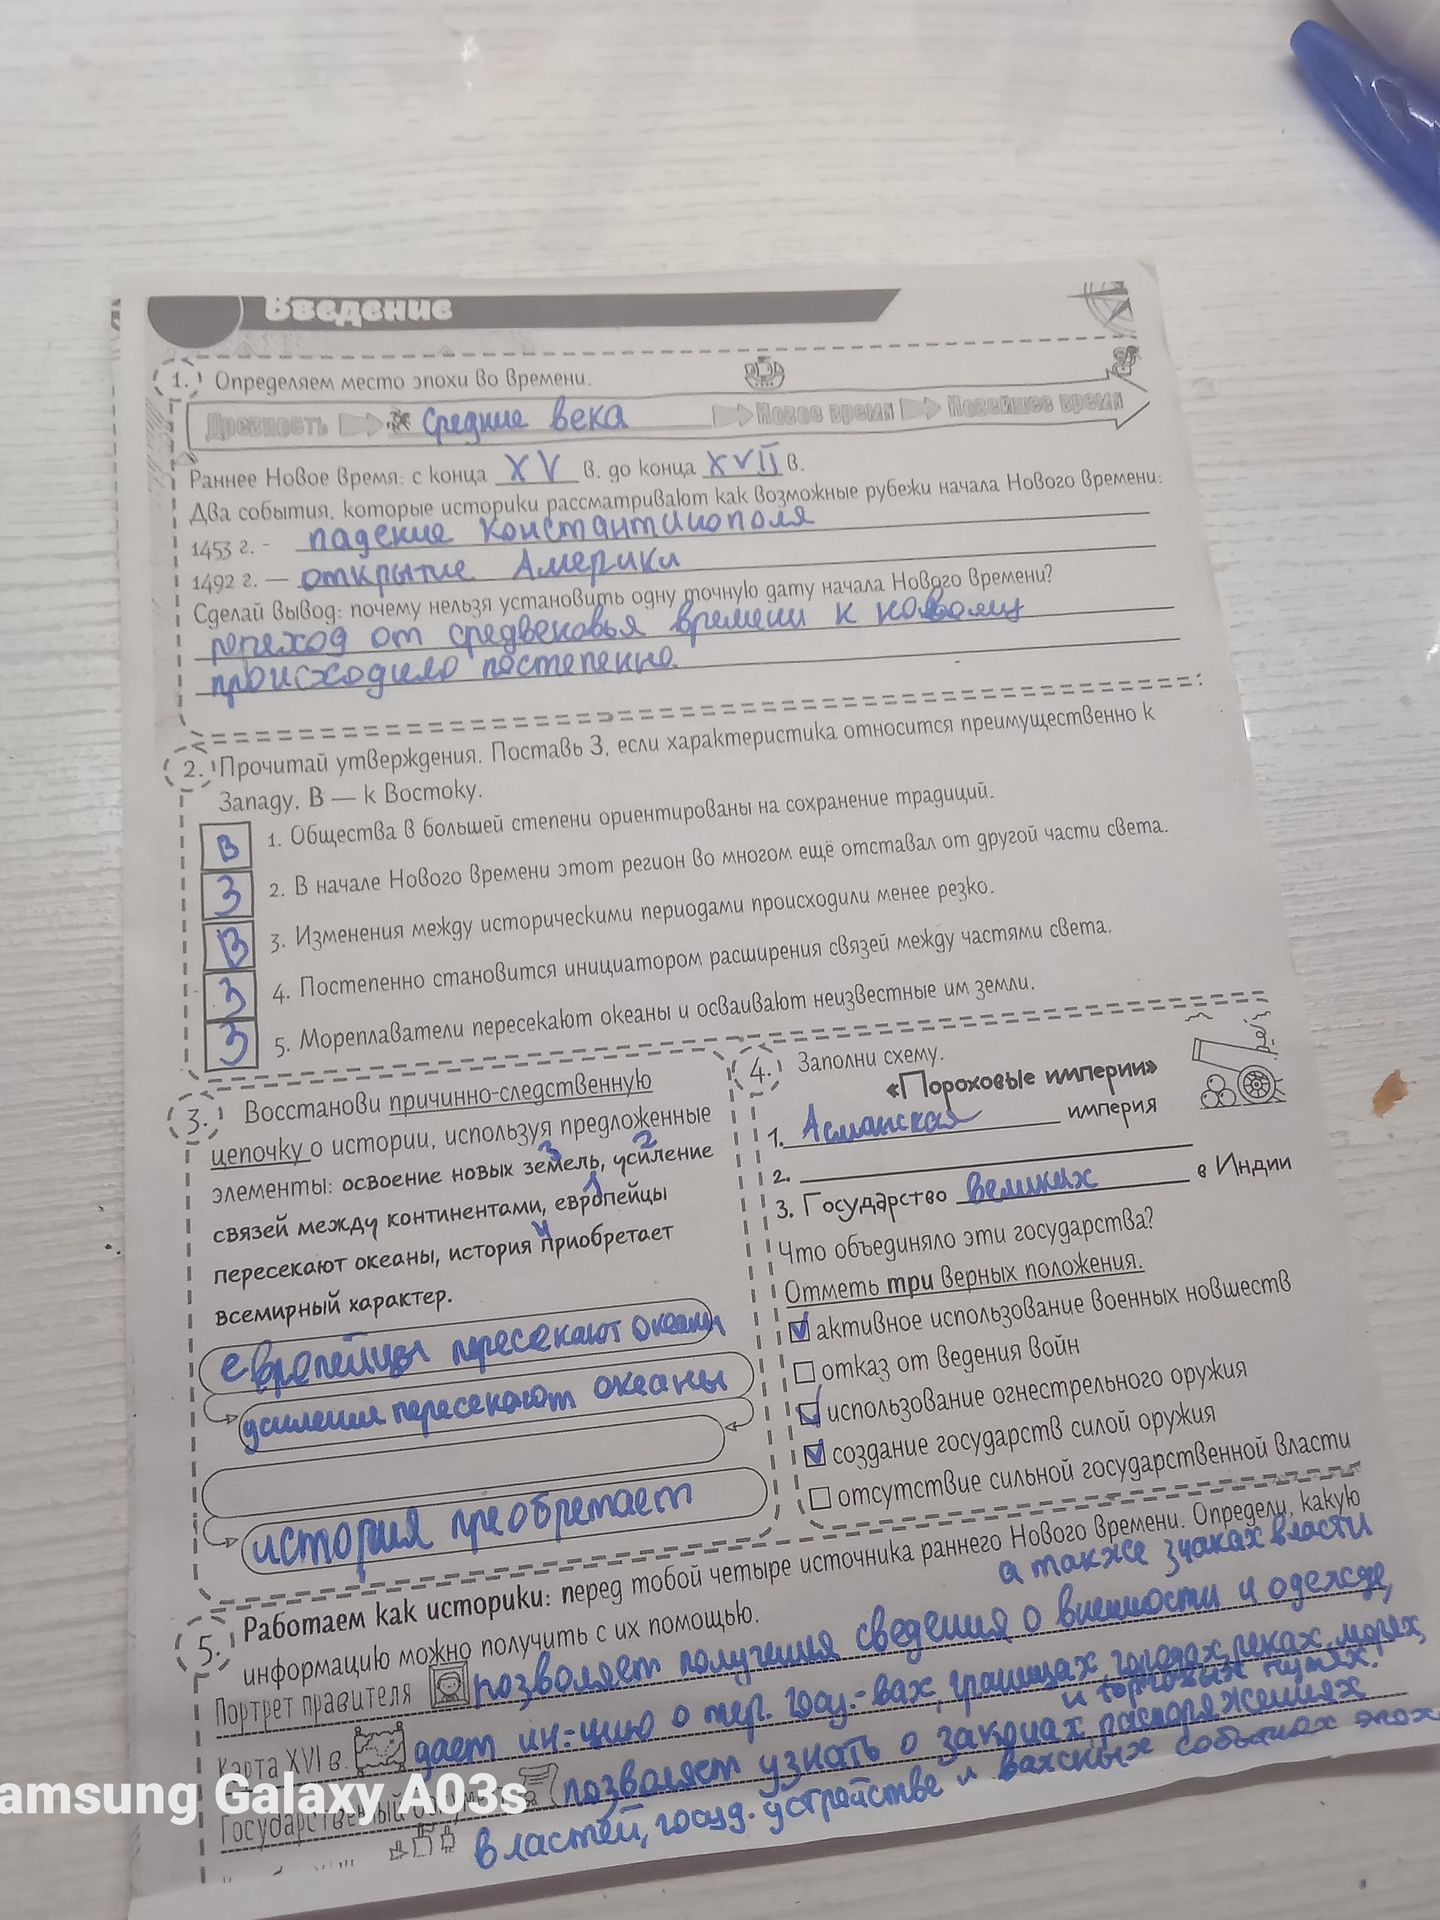 Введение
1. Определяем место эпохи во времени.
Древность Средние века Новое время Новейшее время
Раннее Новое Время: с конца XV в. до конца XVII в.
Два события, которые историки рассматривают как возможные рубежи начала Нового Времени:
1453 г. - падение Константинополя
1492 г. — открытие Америки
Сделай вывод: почему нельзя установить одну точную дату начала Нового Времени?
от средвековья времени к
происходило постепенно.
2. Прочитай утверждения. Поставь З, если характеристика относится преимущественно к
Западу, В — к Востоку.
В 1. Общества в большей степени ориентированы на сохранение традиций.
З 2. В начале Нового Времени этот регион во многом ещё отставал от другой части света.
В 3. Изменения между историческими периодами происходили менее резко.
З 4. Постепенно становится инициатором расширения связей между частями света.
З 5. Мореплаватели пересекают океаны и осваивают неизвестные им земли.
3. Восстанови причинно-следственную
цепочку о истории, используя предложенные
3 2
элементы: освоение новых земель, усиление
1
связей между континентами, европейцы
4
пересекают океаны, история приобретает
всемирный характер.
европейцы пересекают океаны
пересекают океаны
история преобретает
4. Заполни схему.
«Пороховые империи»
1. Асманская империя
2.
3. Государство великих в Индии
Что объединяло эти государства?
Отметь три верных положения.
активное использование военных новшеств
отказ от ведения войн
использование огнестрельного оружия
создание государств силой оружия
отсутствие сильной государственной власти
5. Работаем как историки: перед тобой четыре источника раннего Нового Времени. Определи, какую
информацию можно получить с их помощью.
а также знаках власти
Портрет правителя позволяет сведения о внешности и одежде,
Карта XVI в. дает ин-цию о тер. госу.-вах, границах, городах, реках, морях,
и торговых путях.
Государственный позволяет узнать о законах, распоряжениях
властей, госуд. устройстве и важных событиях эпохи
Samsung Galaxy A03s